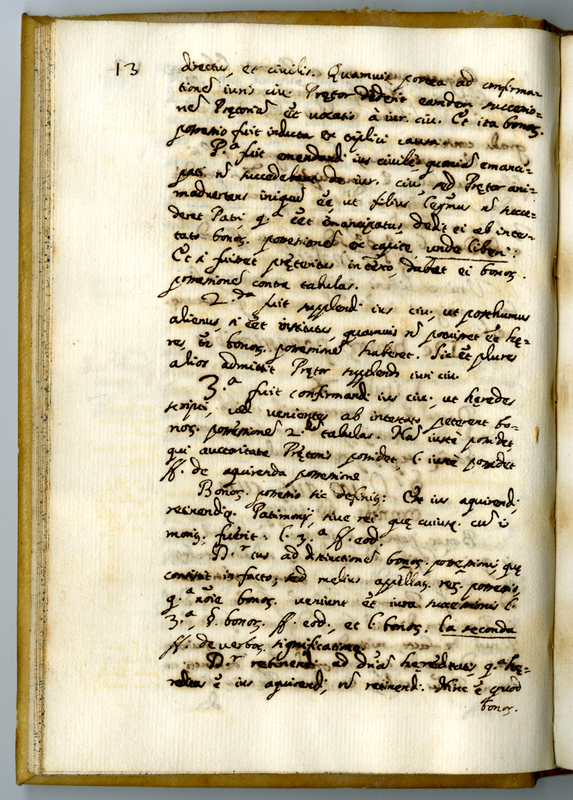 13
directus, et civilis. Quamvis postea ad confirma-
tionē iuris civ. Prętor dederit eamdem successio-
nē Prętoriā et̄ vocatis à iur. civ. Et ita bonoȝ.
possessio fuit inducta ex triplici causa.
P.ª fuit emendandi ius civile, quoniā emanci-
pati n̄ succedebant de iur. civ. sed Prętor ani-
madvertens iniquū eē, ut filius n̄ succe-
deret Patri, q.ª eēt emancipatus, dedit ei ab intes-
tato bonoȝ. possessionē ex capite unde liberi:
Et si fuisset pręteritus in testo, dabat ei bonoȝ.
possessionē contra tabulas.
2.da fuit supplendi ius civ., ut posthumus
alienus, si eēt institutus, quamvis n̄ posset eē hę-
res, tn̄ bonoȝ. possessionē haberet. Sic et̄ plures
alios admittit Prętor supplendo iuri civ.
3.ª fuit confirmandi ius civ., ut heredes
scripti, vel venientes ab intestato peterent bo-
noȝ. possessionē 2.dū tabulas. Nā iuste possidet,
qui auctoritate Prętoris possidet, l. iuste possidet
ff. de aquirenda possessione
Bonoȝ. possessio sic definiȝ: Est ius aquirendi,
retinendiq. Patrimonij, sive rei quę cuiusq. cū
moriȝ. fuerit. l. 3.ª ff. eod.
D.r ius ad distinctionē bonoȝ. possessionis, quę
consistit in facto; sed melius appellaȝ. reȝ. possessio,
q.ª nōie bonoȝ. veniunt et̄ iura successionis l.
3.ª, § bonoȝ. ff. eod., et l. bonoȝ. la seconda
ff. de verboȝ. significatione.
D.r retinendi ad dr̄iam hereditatis, q.ª hę-
reditas ē ius aquirendi, n̄ retinendi. Hinc ē quod
bonoȝ.